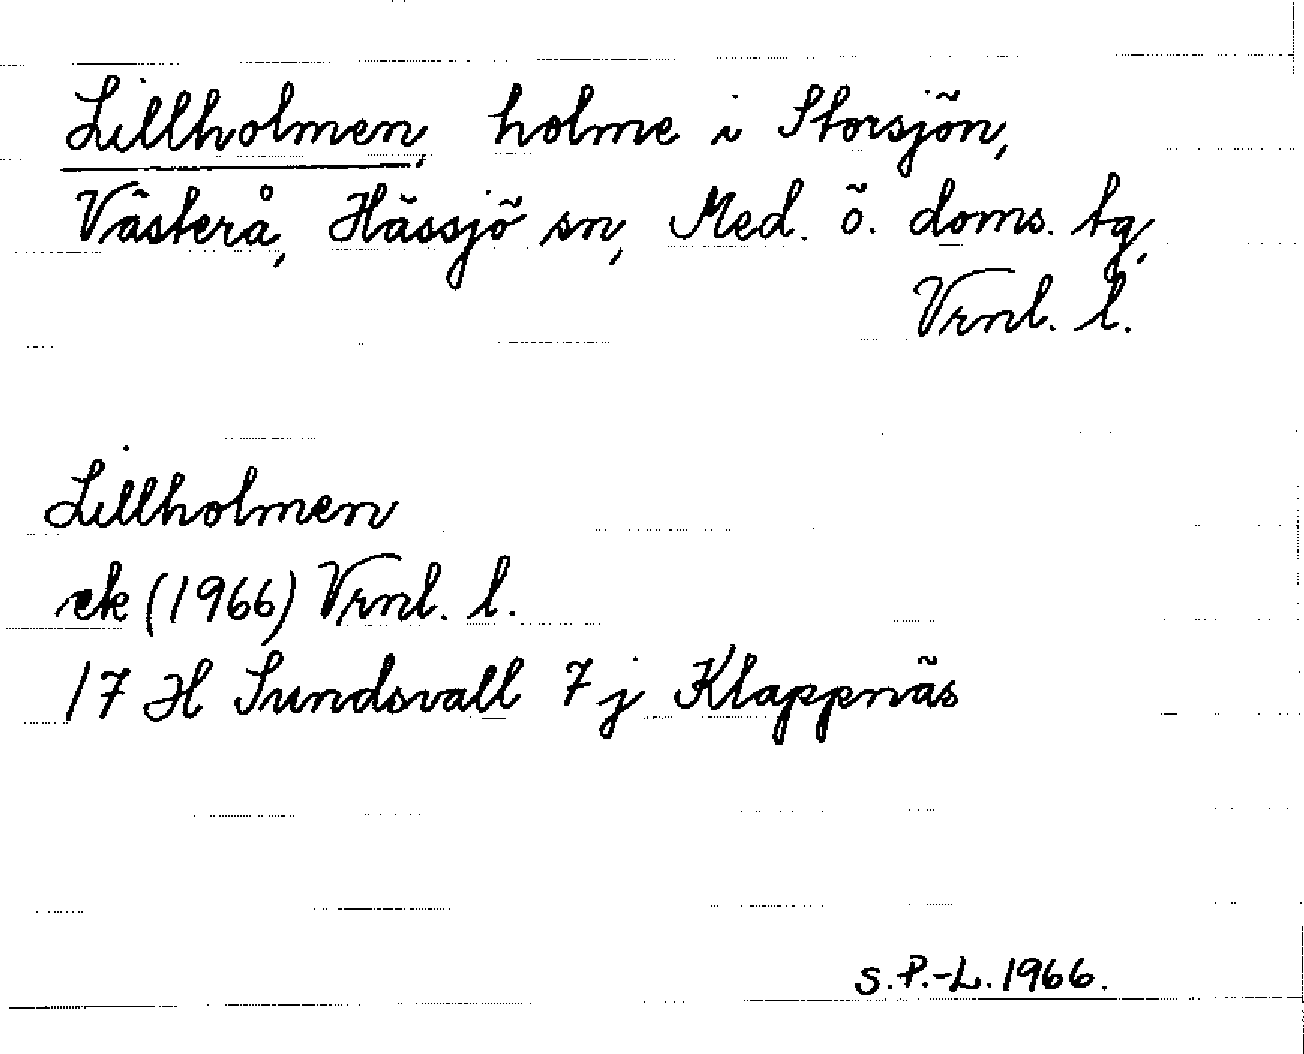 Lillholmen, holme i Storsjön,
Västerå, Hässjö sn, Med. ö. doms. tg,
Vrnl. l.
Lillholmen
ek (1966) Vrnl. l.
17 H Sundsvall 7 j Klappnäs
S.P.-L. 1966.